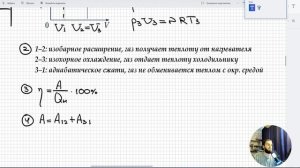 0 V₁ V₂=V₃ V
p₃V₃=νRT₃
② 1–2: изобарное расширение, газ получает теплоту от нагревателя
2–3: изохорное охлаждение, газ отдает теплоту холодильнику
3–1: адиабатическое сжатие, газ не обменивается теплом с окр. средой
③ η = A/Qн · 100%
④ A = A₁₂ + A₃₁